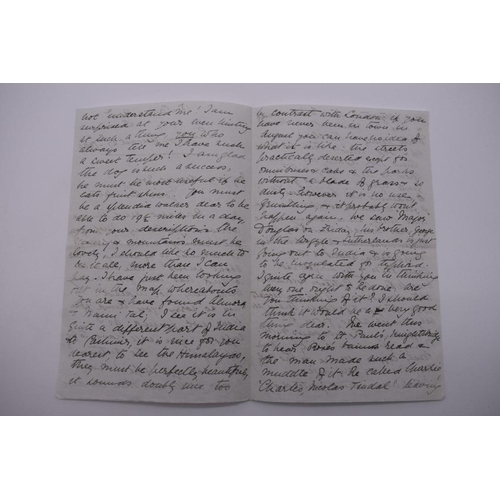 not "understand me" I am
surprised at your even hinting
at such a thing, you who
always tell me I have such
a sweet temper! I am glad
the dog is such a success,
he must be most useful if he
eats fruit skins. You must
be a splendid walker dear to be
able to do 19½ miles in a day,
from your descriptions the
scenery & mountains must be
lovely, I should like so much to
see it all, more than I can
say. I have just been looking
out in the map, whereabouts
you are & have found Almora
& Naini Tal, I see it is in
quite a different part of India
to Kashmir, it is nice for you
dearest, to see the Himalayas,
they must be perfectly beautiful,
it sounds doubly nice too
by contrast with London, if you
have never been in town in
August you can have no idea of
what it is like. the streets
practically deserted except for
omnibuses & cabs & the parks
without a blade of grass & so
dusty, however it is no use
grumbling & it probably won't
happen again. We saw Major
Douglas on Friday, his brother George
in the Argyle & Sutherlands is just
going out to India & is going
to be inoculated for typhoid.
I quite agree with you in thinking
everyone ought to be done. Are
you thinking of it? I should
think it would be a very good
thing dear. We went this
morning to St Paul's, Knightsbridge
to hear Rose's banns read &
the man made such a
muddle of it. He called Charlie
'Charles, Nicolas Tindal' leaving